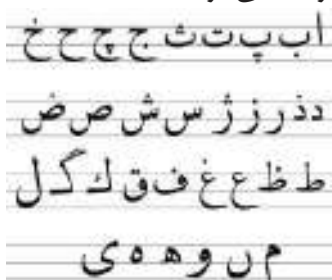 ا ب پ ت ث ج چ ح خ
د ذ ر ز ژ س ش ص ض
ط ظ ع غ ف ق ك گ ل
م ن و ه ه ی